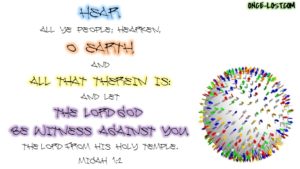 HEAR,
ALL YE PEOPLE; HEARKEN,
O EARTH,
AND
ALL THAT THEREIN IS:
AND LET
THE LORD GOD
BE WITNESS AGAINST YOU,
THE LORD FROM HIS HOLY TEMPLE.
MICAH 1:2
ONCE-LOST.COM